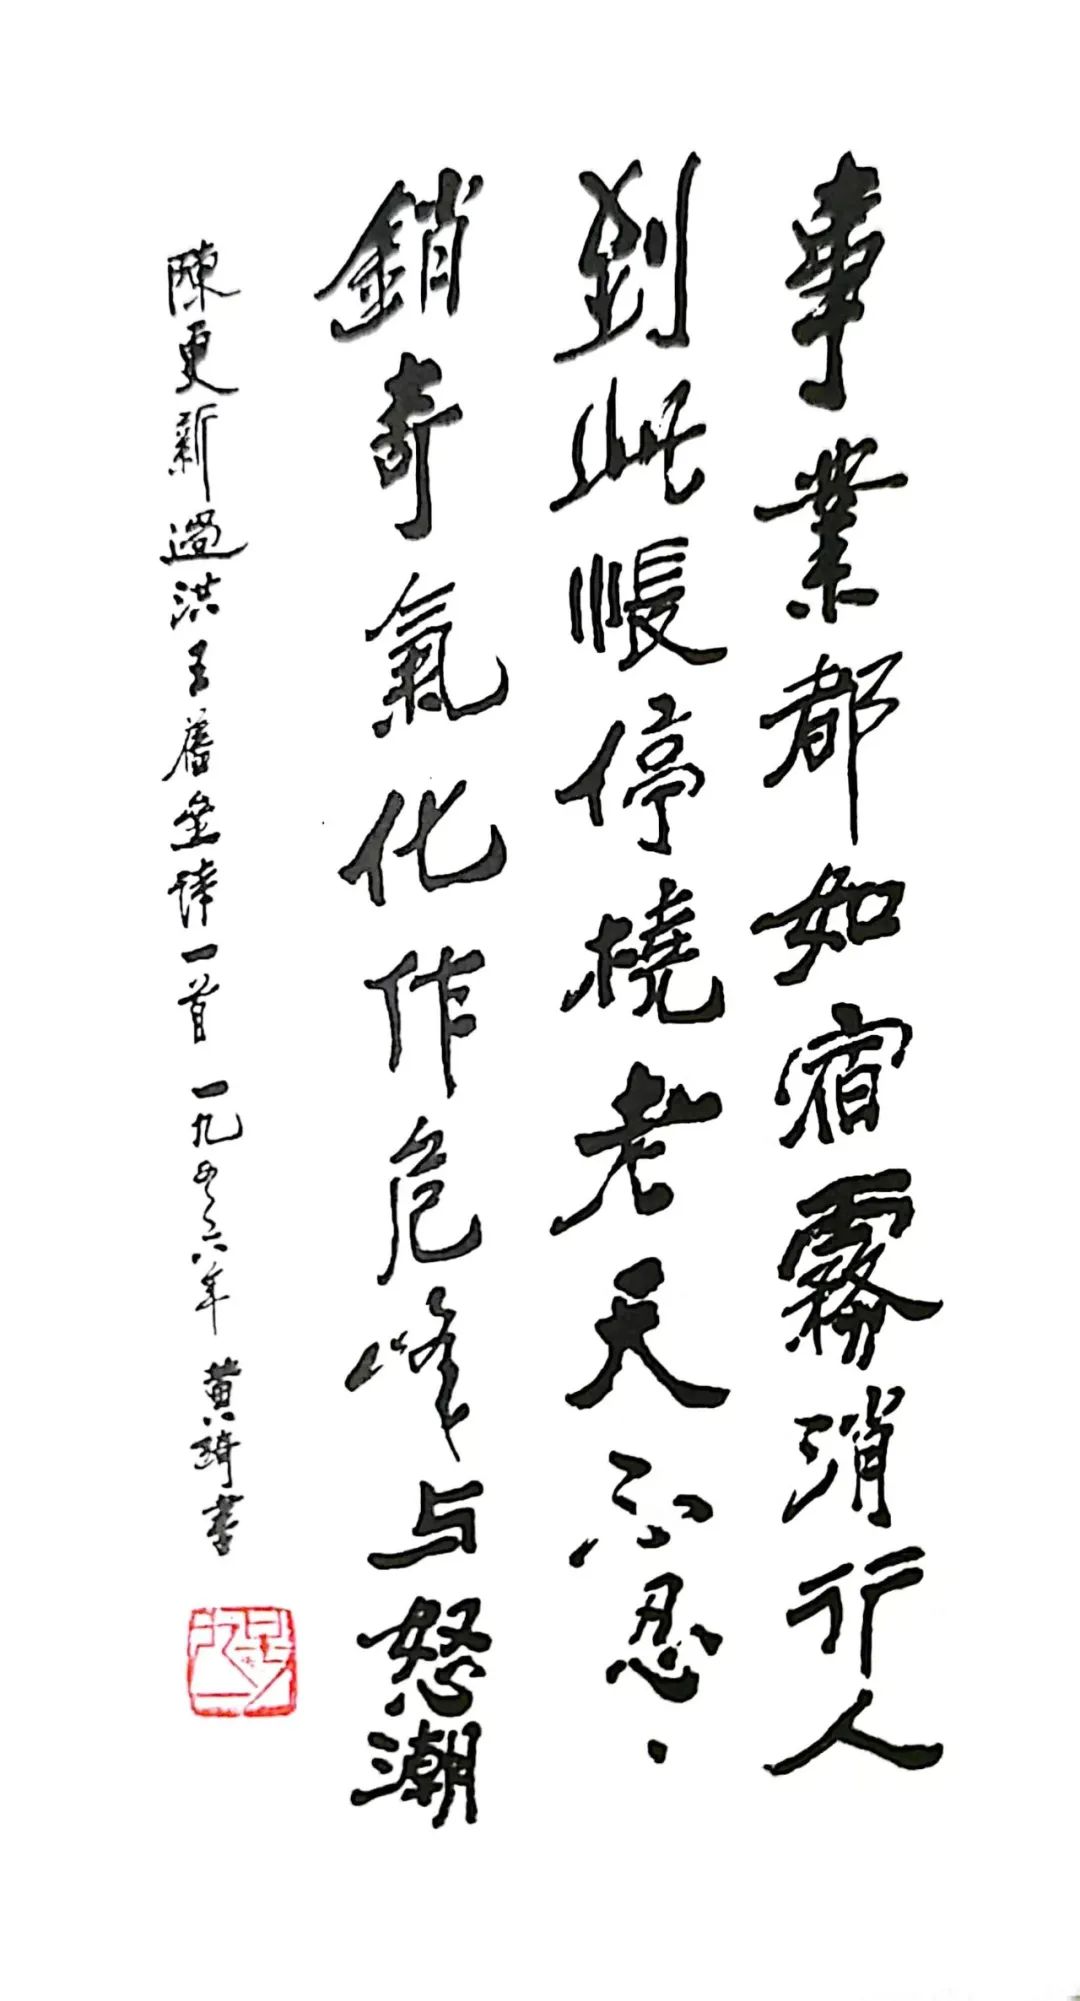 事業都如宿霧消行人
到此悵停橈老天不忍、
銷奇氣化作危峰与怒潮
陳更新過洪王舊壘詩一首 一九五六年 黄琦書